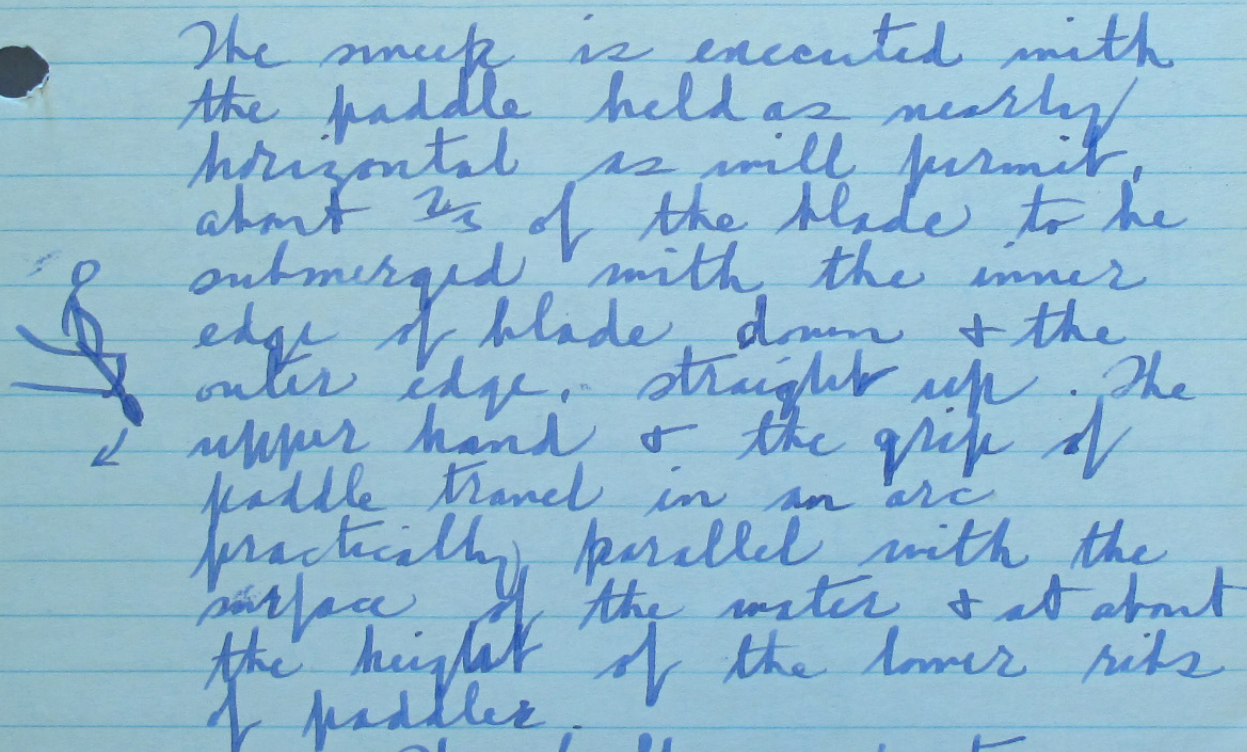 The sweep is executed with
the paddle held as nearly
horizontal as will permit,
about 2/3 of the blade to be
submerged with the inner
edge of blade down & the
outer edge, straight up. The
upper hand & the grip of
paddle travel in an arc
practically parallel with the
surface of the water & at about
the height of the lower ribs
of paddler.